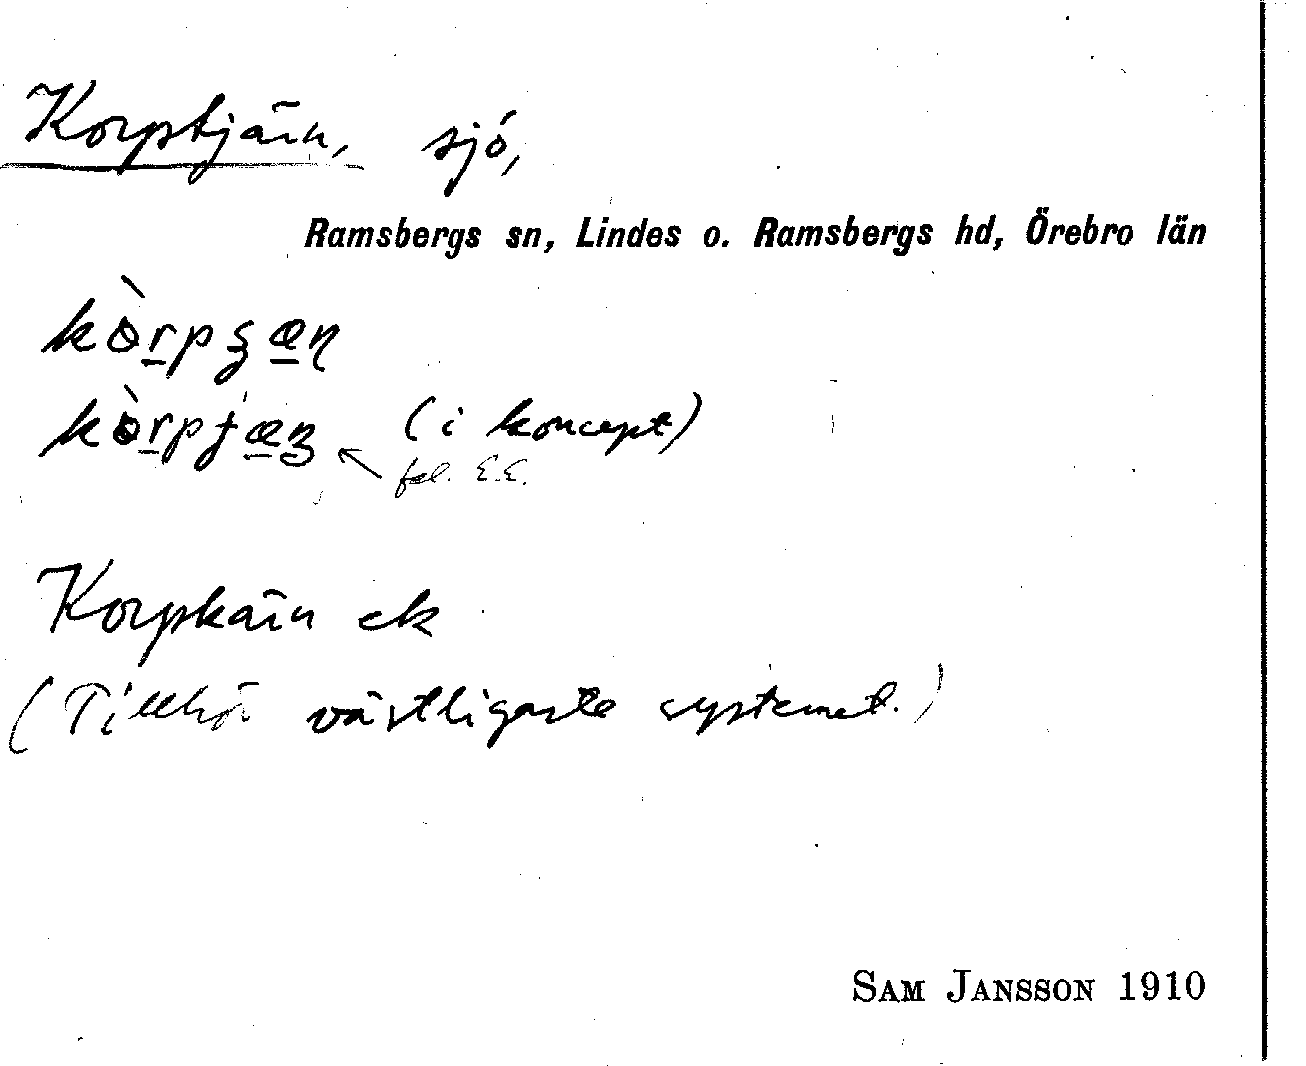 Korptjärn, sjö,
Ramsbergs sn, Lindes o. Ramsbergs hd, Örebro län
(i koncept)
fel. E.E.
Korpkärn ek
(Tillhör västligaste systemet.)
SAM JANSSON 1910